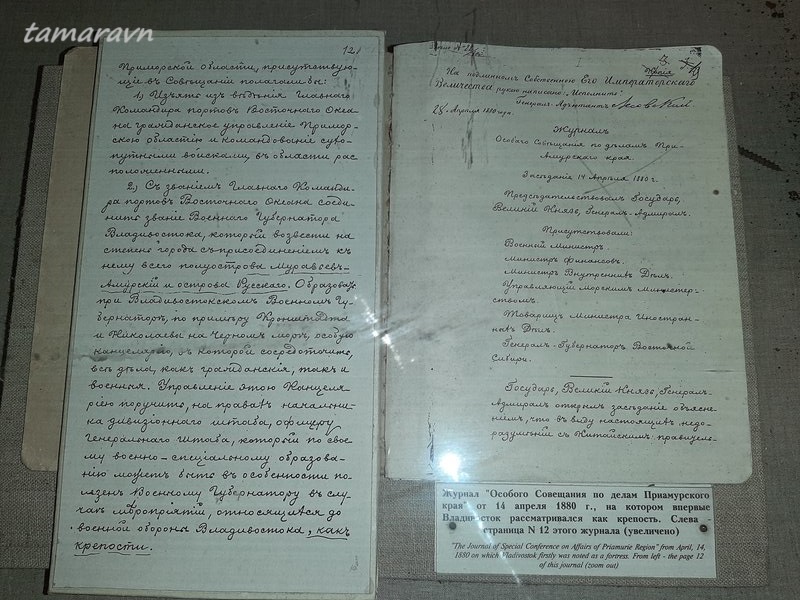 tamaravn
12.
Приморской области, присутствую-
щіе въ Совѣщаніи полагали бы:
1) Изъять изъ вѣдѣнія Главнаго
Командира портовъ Восточнаго Океа
на гражданское управленіе Примор-
скою областію и командованіе сухо-
путными войсками, въ области рас
положенными.
2) Съ званіемъ Главнаго Команди-
ра портовъ Восточнаго Океана соеди-
нить званіе Военнаго Губернатора
Владивостока, который возвести на
степень города съ присоединеніемъ къ
нему всего полуострова Муравьевъ-
Амурскій и острова Русскаго. Образовать
при Владивостокскомъ Военномъ Гу-
бернаторѣ, по примѣру Кронштадта
и Николаева на Черномъ морѣ, особую
канцелярію, въ которой сосредоточить,
всѣ дѣла, какъ гражданскія, такъ и
военныя. Управленіе этою Канцеля
ріею поручить, на правахъ начальни-
ка дивизіоннаго штаба, офицеру
Генеральнаго штаба, который по свое
му военно-спеціальному образова-
нію можетъ быть въ особенности по-
лезенъ Военному Губернатору въ слу-
чаѣ мѣропріятій, относящихся до
военной обороны Владивостока, какъ
крѣпости.
На подлинномъ Собственною Его Императорскаго
Величества рукою написано: "Исполнить".
Генералъ-Адъютантъ
28 Апрѣля 1880 года.
Журналъ
Особаго Совѣщанія по дѣламъ При-
Амурскаго края.
Засѣданіе 14 Апрѣля 1880 г.
Предсѣдательствовалъ Государь,
Великій Князь, Генералъ-Адмиралъ.
Присутствовали:
Военный Министръ.
Министръ Финансовъ.
Министръ Внутреннихъ Дѣлъ.
Управляющій Морскимъ Министер-
ствомъ.
Товарищъ Министра Иностран-
ныхъ Дѣлъ.
Генералъ-Губернаторъ Восточной
Сибири.
Государь, Великій Князь, Генералъ-
Адмиралъ открылъ засѣданіе объясне-
ніемъ, что въ виду настоящихъ недо-
разумѣній съ Китайскимъ правитель-
Журнал "Особого Совещания по делам Приамурского
края" от 14 апреля 1880 г., на котором впервые
Владивосток рассматривался как крепость. Слева -
страница N 12 этого журнала (увеличено)
"The Journal of Special Conference on Affairs of Priamurie Region" from April, 14,
1880 on which Vladivostok firstly was noted as a fortress. From left - the page 12
of this journal (zoom out)